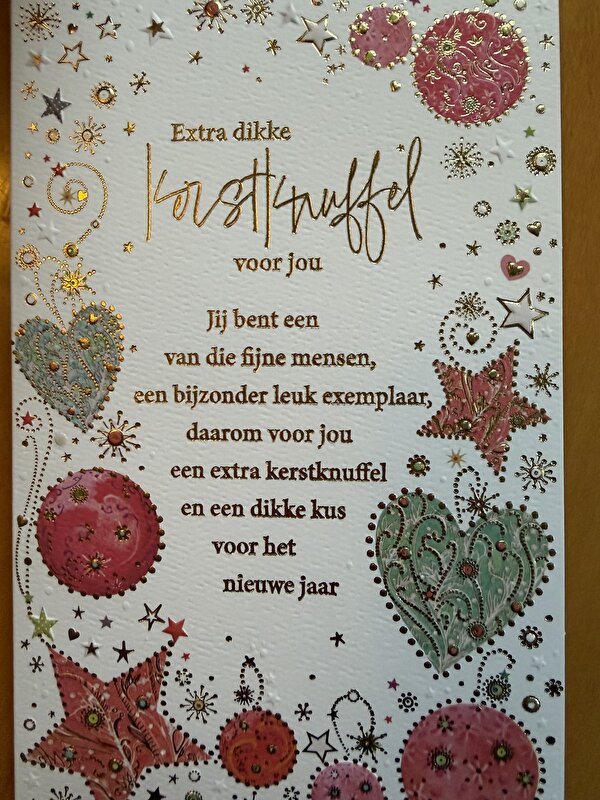 Extra dikke
kerstknuffel
voor jou
Jij bent een
van die fijne mensen,
een bijzonder leuk exemplaar,
daarom voor jou
een extra kerstknuffel
en een dikke kus
voor het
nieuwe jaar